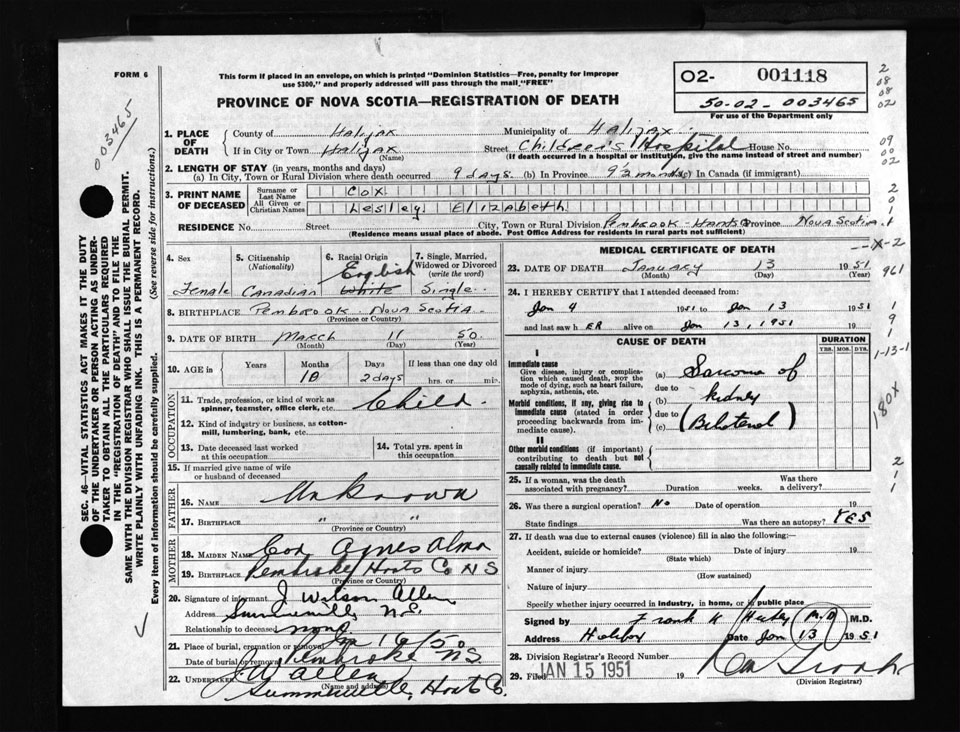 FORM 6
This form if placed in an envelope, on which is printed "Dominion Statistics—Free, penalty for improper
use $300," and properly addressed will pass through the mail "FREE"
PROVINCE OF NOVA SCOTIA—REGISTRATION OF DEATH
O2- 001118
50-02-003465
For use of the Department only
003465
SEC. 46—VITAL STATISTICS ACT MAKES IT THE DUTY
OF THE UNDERTAKER OR PERSON ACTING AS UNDER-
TAKER TO OBTAIN ALL THE PARTICULARS REQUIRED
IN THE "REGISTRATION OF DEATH" AND TO FILE THE
SAME WITH THE DIVISION REGISTRAR WHO SHALL ISSUE THE BURIAL PERMIT.
WRITE PLAINLY WITH UNFADING INK. THIS IS A PERMANENT RECORD.
Every item of information should be carefully supplied. (See reverse side for instructions.)
1. PLACE OF DEATH
County of Halifax Municipality of Halifax
If in City or Town Halifax Street Children's Hospital House No.
(Name) (If death occurred in a hospital or institution, give the name instead of street and number)
2. LENGTH OF STAY (in years, months and days)
(a) In City, Town or Rural Division where death occurred 9 days. (b) In Province 9½ months (c) In Canada (if immigrant)
3. PRINT NAME OF DECEASED
Surname or Last Name Cox
All Given or Christian Names Lesley Elizabeth
RESIDENCE No. Street City, Town or Rural Division Pembrook - Hants Province Nova Scotia
(Residence means usual place of abode. Post Office Address for residents in rural parts not sufficient)
4. Sex Female
5. Citizenship (Nationality) Canadian
6. Racial Origin English White
7. Single, Married, Widowed or Divorced (write the word) Single
8. BIRTHPLACE Pembrook Nova Scotia
(Province or Country)
9. DATE OF BIRTH March 11 50
(Month) (Day) (Year)
10. AGE in Years Months 10 Days 2 days If less than one day old hrs. or min.
OCCUPATION
11. Trade, profession, or kind of work as spinner, teamster, office clerk, etc. Child
12. Kind of industry or business, as cotton-mill, lumbering, bank, etc.
13. Date deceased last worked at this occupation
14. Total yrs. spent in this occupation
15. If married give name of wife or husband of deceased
FATHER
16. NAME Unknown
17. BIRTHPLACE " "
(Province or Country)
MOTHER
18. MAIDEN NAME Cox Agnes Alma
19. BIRTHPLACE Pembroke Hants Co NS
(Province or Country)
20. Signature of informant J Wilson Allen
Address Summerville N.S.
Relationship to deceased none
21. Place of burial, cremation or removal
Jan 16/50
Date of burial or removal Pembroke N.S.
22. UNDERTAKER J.W. Allen
(Name and address)
Summerville, Hants Co.
MEDICAL CERTIFICATE OF DEATH
23. DATE OF DEATH January 13 1951
(Month) (Day) (Year)
24. I HEREBY CERTIFY that I attended deceased from:
Jan 4 1951 to Jan 13 1951
and last saw h ER alive on Jan 13, 1951 19
CAUSE OF DEATH
DURATION
YRS. MOS. DYS.
I
Immediate cause
Give disease, injury or complication which caused death, NOT the mode of dying, such as heart failure, asphyxia, asthenia, etc.
(a) Sarcoma of
due to
Morbid conditions, if any, giving rise to immediate cause (stated in order proceeding backwards from immediate cause).
(b) kidney
due to
(c) (Bilateral)
II
Other morbid conditions (if important) contributing to death but not causally related to immediate cause.
25. If a woman, was the death associated with pregnancy? Duration weeks. Was there a delivery?
26. Was there a surgical operation? No Date of operation 19
State findings Was there an autopsy? YES
27. If death was due to external causes (violence) fill in also the following:—
Accident, suicide or homicide? Date of injury 19
(State which)
Manner of injury
(How sustained)
Nature of injury
Specify whether injury occurred in industry, in home, or public place
Signed by Frank M.D. M.D.
Address Halifax Date Jan 13 1951
28. Division Registrar's Record Number
29. Filed JAN 15 1951 19
(Division Registrar)
2
08
08
02
09
00
02
2
0
1
1
--X-2
961
1
9
1
1-13-1
180X
2
1
1